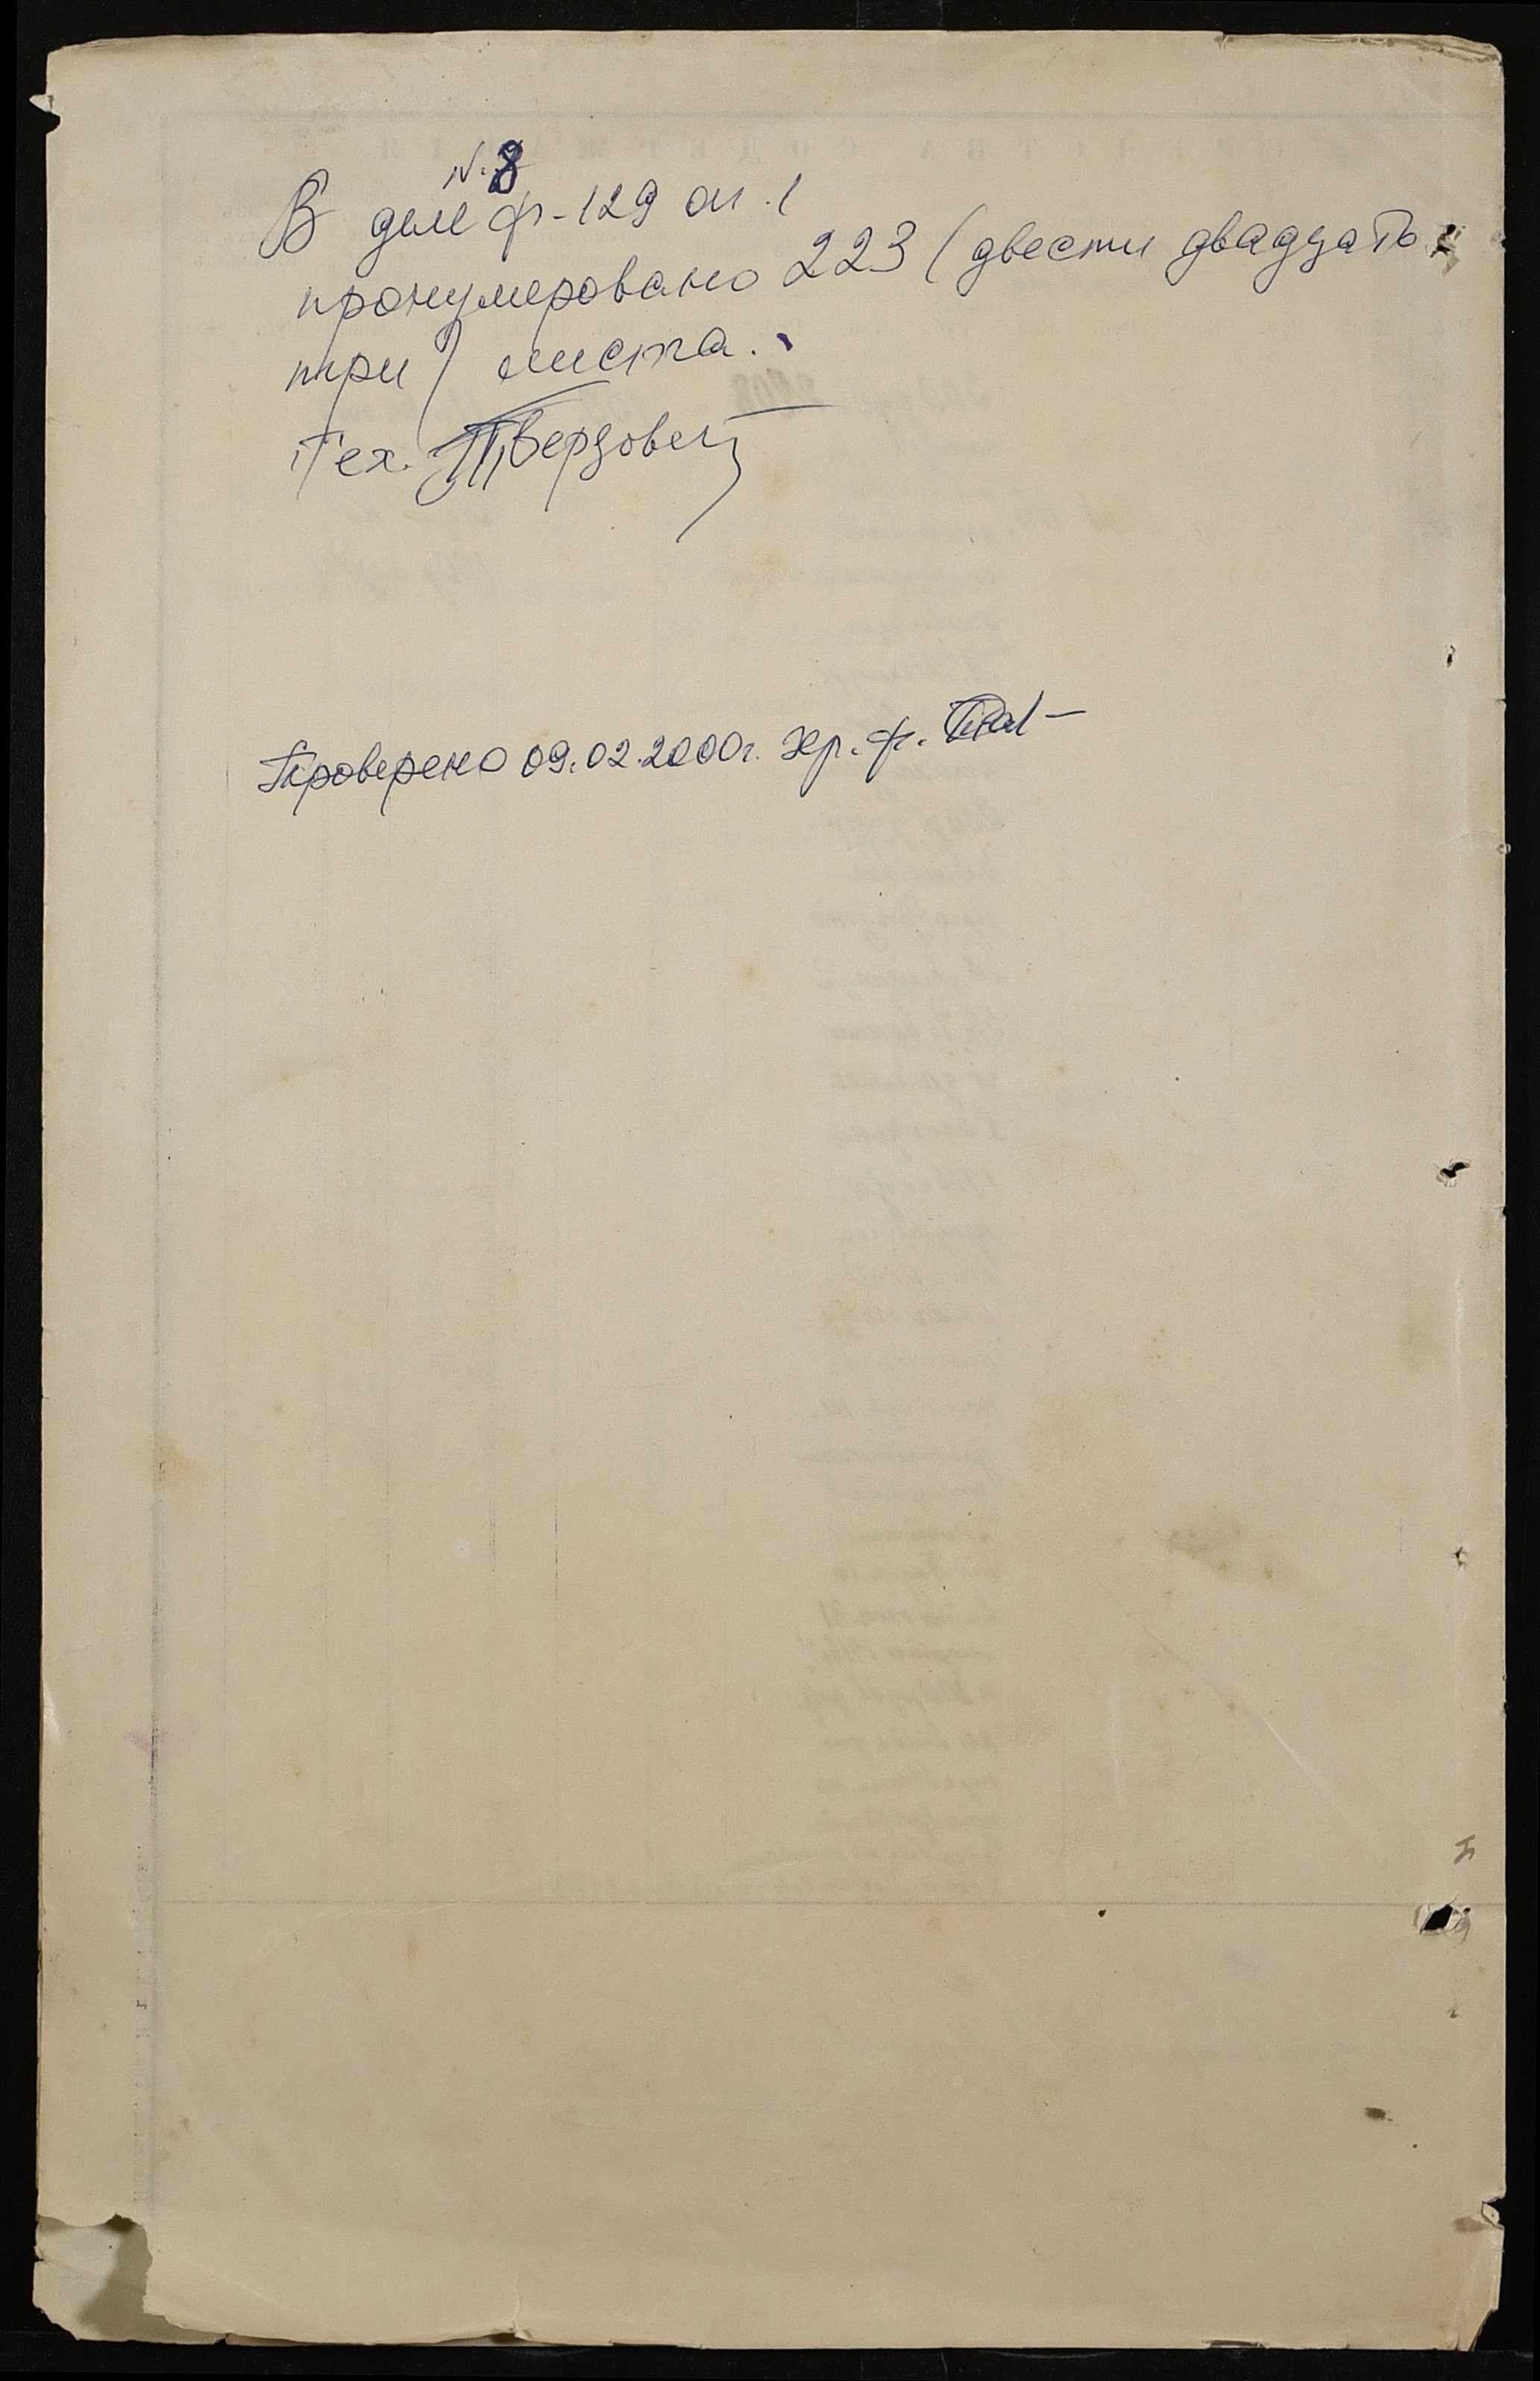 N. 8
В деле ф-129 оп. 1
пронумеровано 223 (двести двадцать
три) листа.
Тех. Твердовец
Проверено 09.02.2000г. хр. ф.